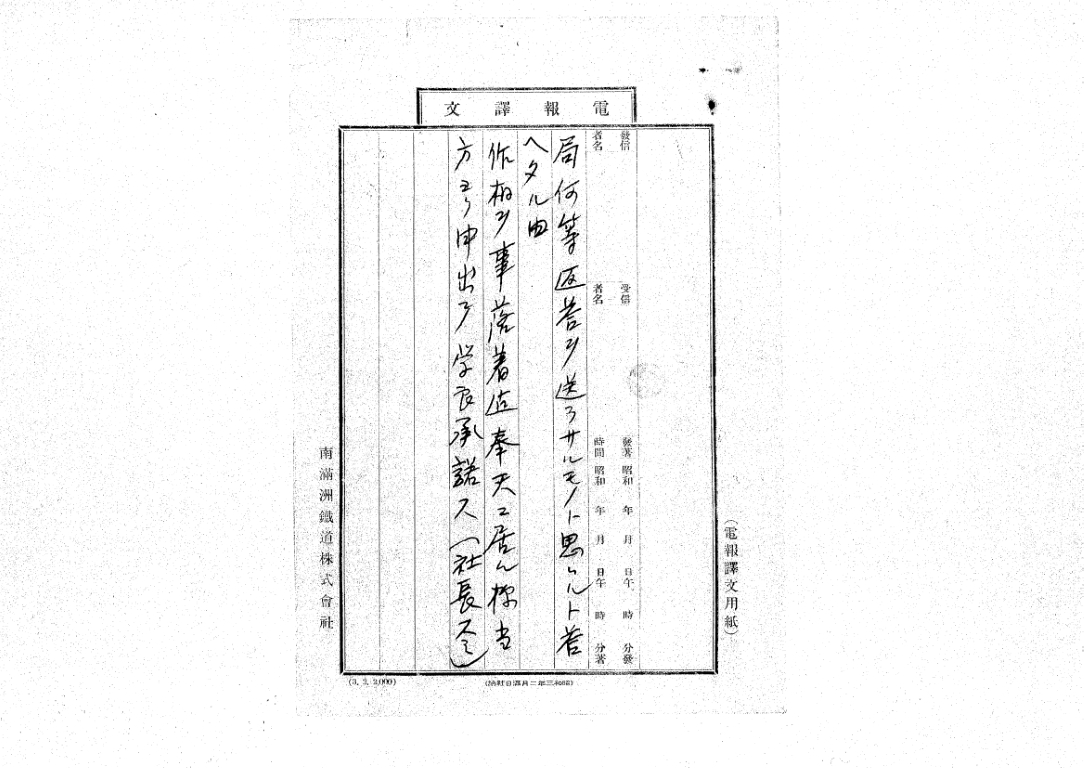 電報譯文
(電報譯文用紙)
發信者名
受信者名
發著時間 昭和 年 月 日午 時 分發
昭和 年 月 日午 時 分著
局何等返答ヲ送ラサルモノト思ハルト答
ヘタル由
作相ヲ事落着迄奉天ニ居ル様当
方ヨリ申出テ学良承諾ス(社長乞)
南滿洲鐵道株式會社
(3. 2. 2,000)